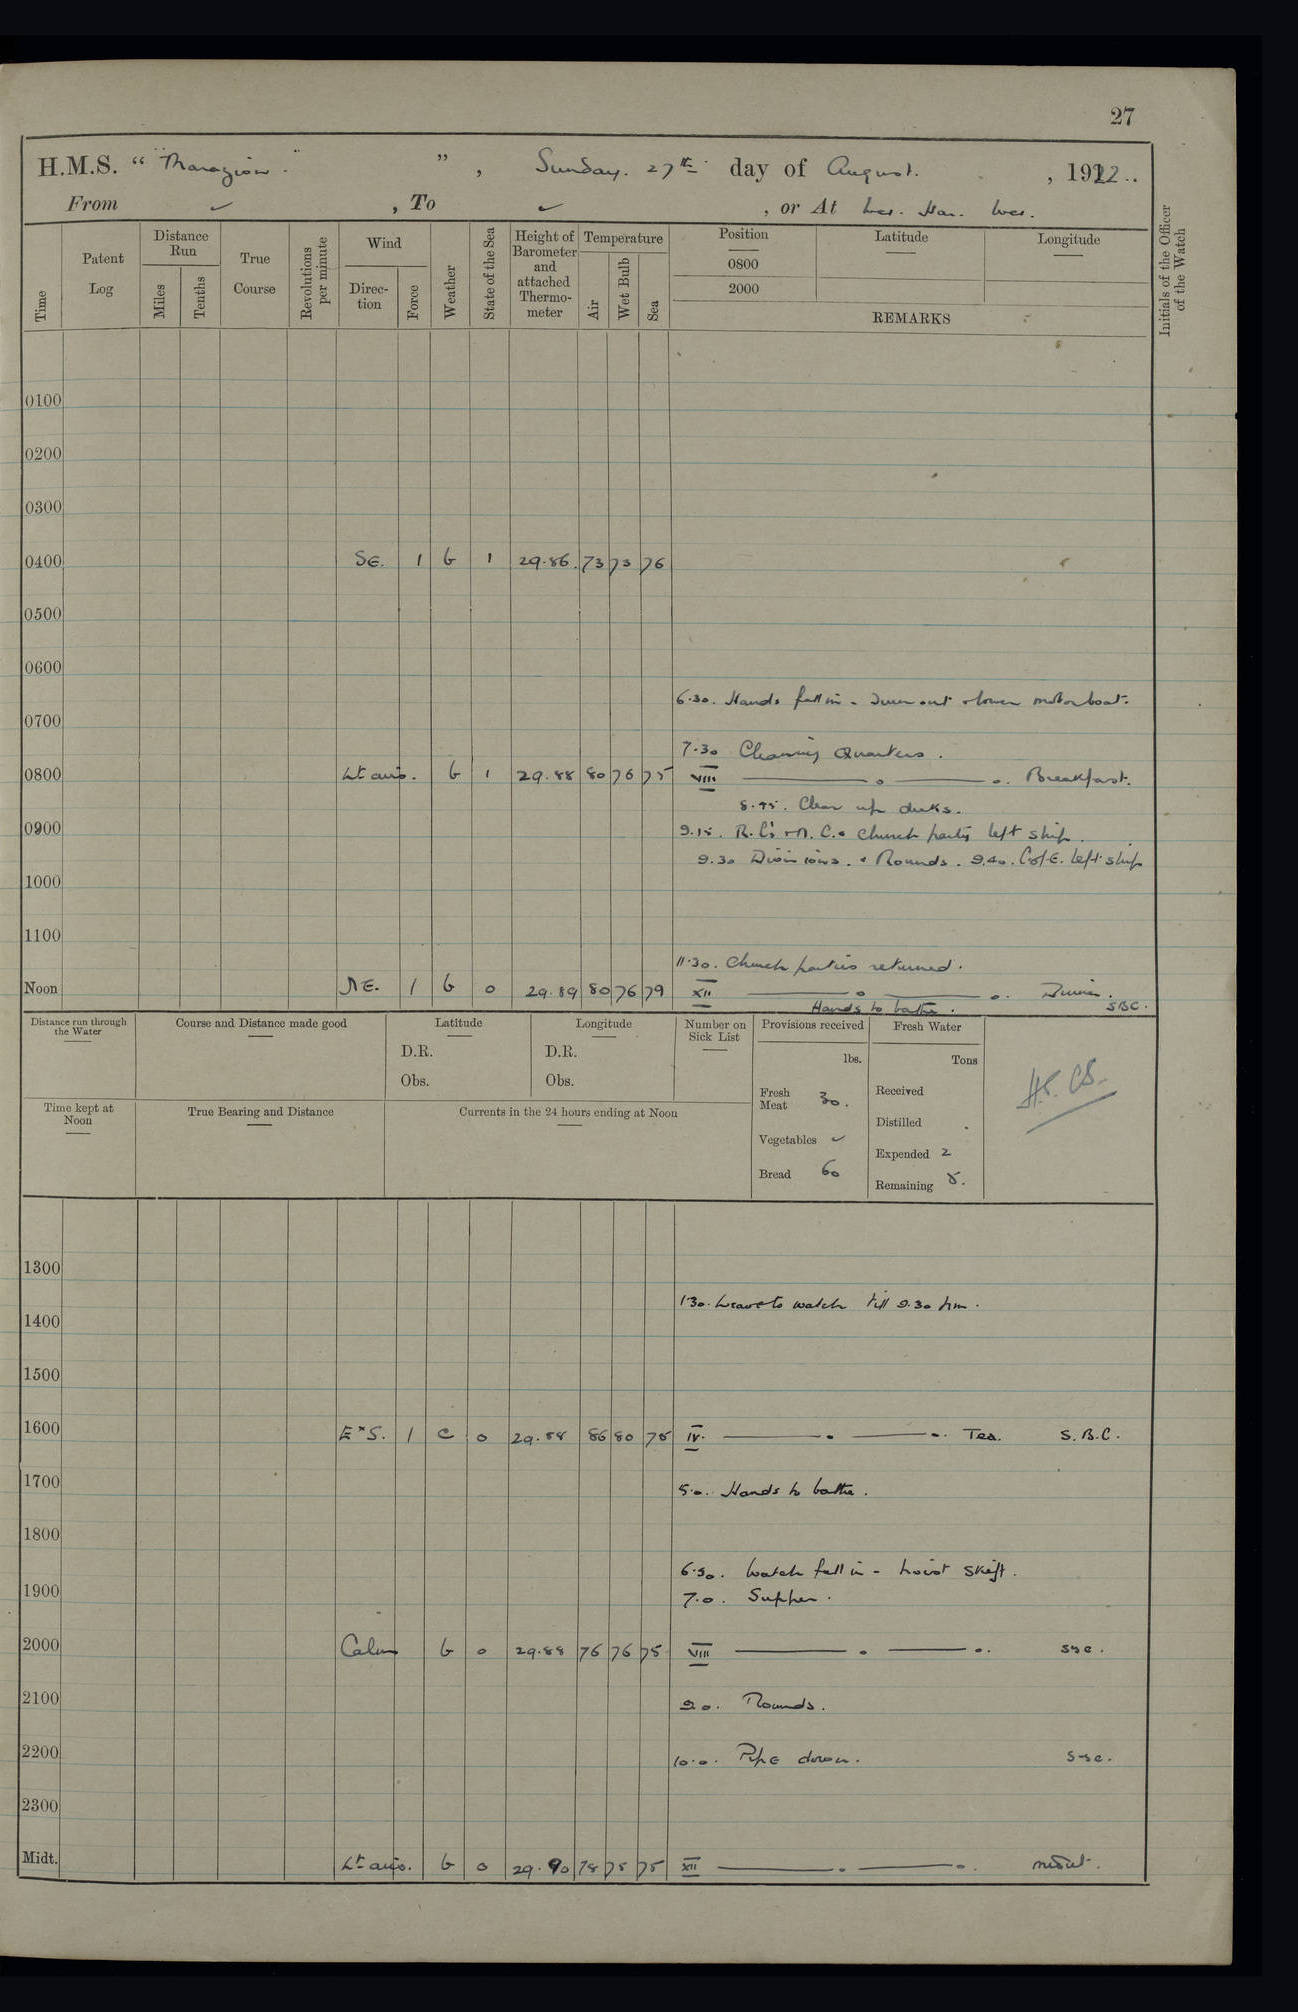 27
H.M.S. “ "Marazion." ” , Sunday. 27th day of August. , 1922..
From ✓ , To ✓ , or At Wei. Hai. Wei.
Time
Patent Log
Distance Run
Miles
Tenths
True Course
Revolutions per minute
Wind
Direction
Force
Weather
State of the Sea
Height of Barometer and attached Thermometer
Temperature
Air
Wet Bulb
Sea
Position
0800
2000
Latitude
Longitude
REMARKS
Initials of the Officer of the Watch
0100
0200
0300
0400 SE. 1 b 1 29.86. 73 73 76
0500
0600
6.30. Hands fall in - out lower motor boat.
0700
7.30 Cleaning Quarters.
0800 Lt airs. b 1 29.88 80 76 75 VIII Breakfast.
8.45. Clear up decks.
0900 9.15. R.C's + N.C.s Church party left ship.
9.30 Divisions. + Rounds. 9.40. C of E. left ship
1000
1100
11.30. Church parties returned.
Noon NE. 1 b 0 29.89 80 76 79 XII Dinner.
Hands to bathe. SBC.
Distance run through the Water
Course and Distance made good
Latitude
D.R.
Obs.
Longitude
D.R.
Obs.
Number on Sick List
Provisions received
lbs.
Fresh Meat 30.
Vegetables ✓
Bread 60
Fresh Water
Tons
Received
Distilled
Expended 2
Remaining 8.
Time kept at Noon
True Bearing and Distance
Currents in the 24 hours ending at Noon
1300
1.30. Leave to watch till 9.30 pm.
1400
1500
1600 E×S. 1 c 0 29.88 86 80 78 IV. Tea. S.B.C.
1700 5.0. Hands to bathe.
1800
6.30. Watch fall in - hoist skiff.
1900 7.0. Supper.
2000 Calm b 0 29.88 76 76 75 VIII
2100 9.0. Rounds.
2200 10.0. Pipe down.
2300
Midt. Lt airs. b 0 29.90 78 75 75 XII